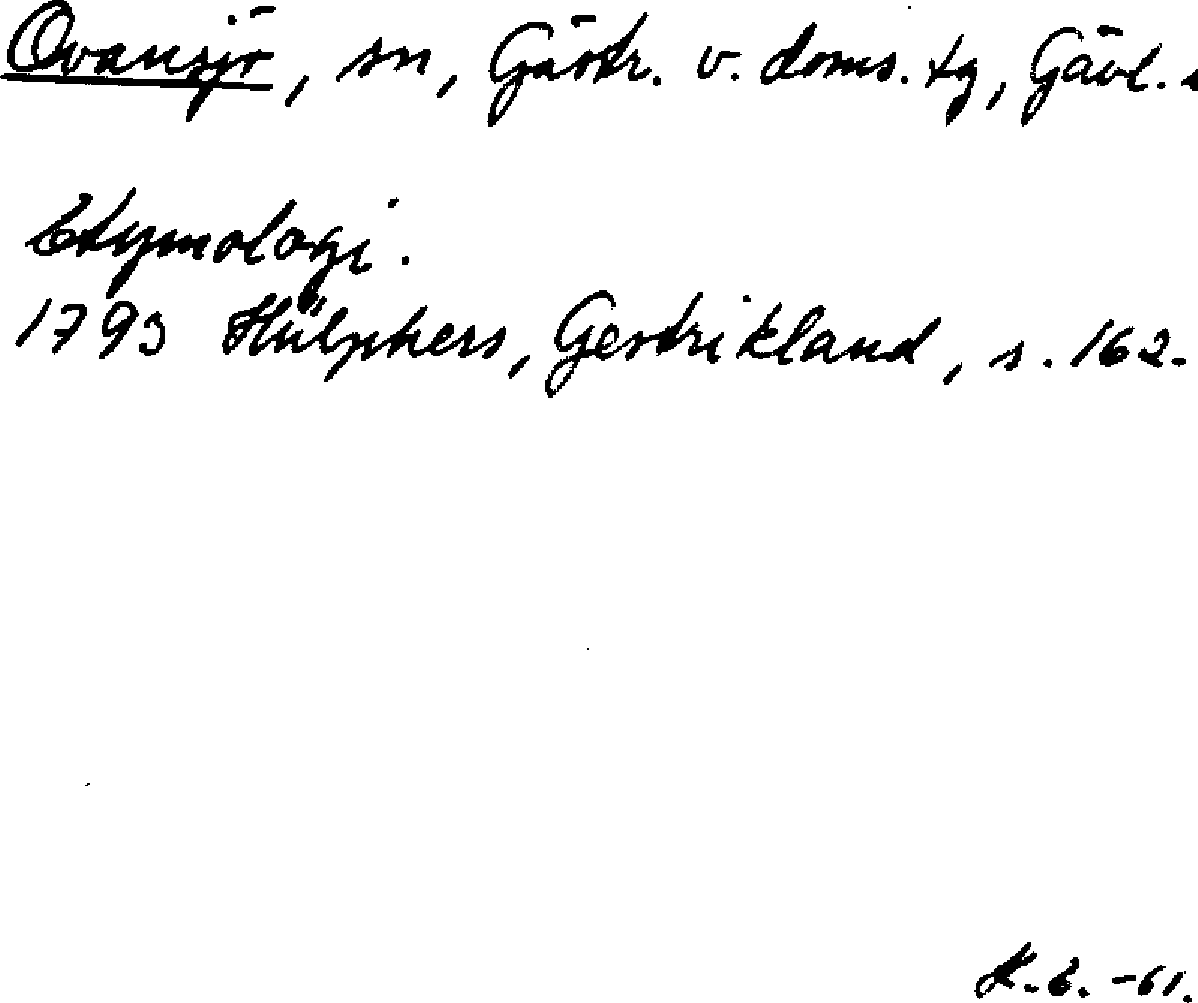 Ovansjö, sn, Gästr. v. doms. tg, Gävl.
Etymologi.
1793 Hülphers, Gestrikland, s. 162.
K.E. -61.